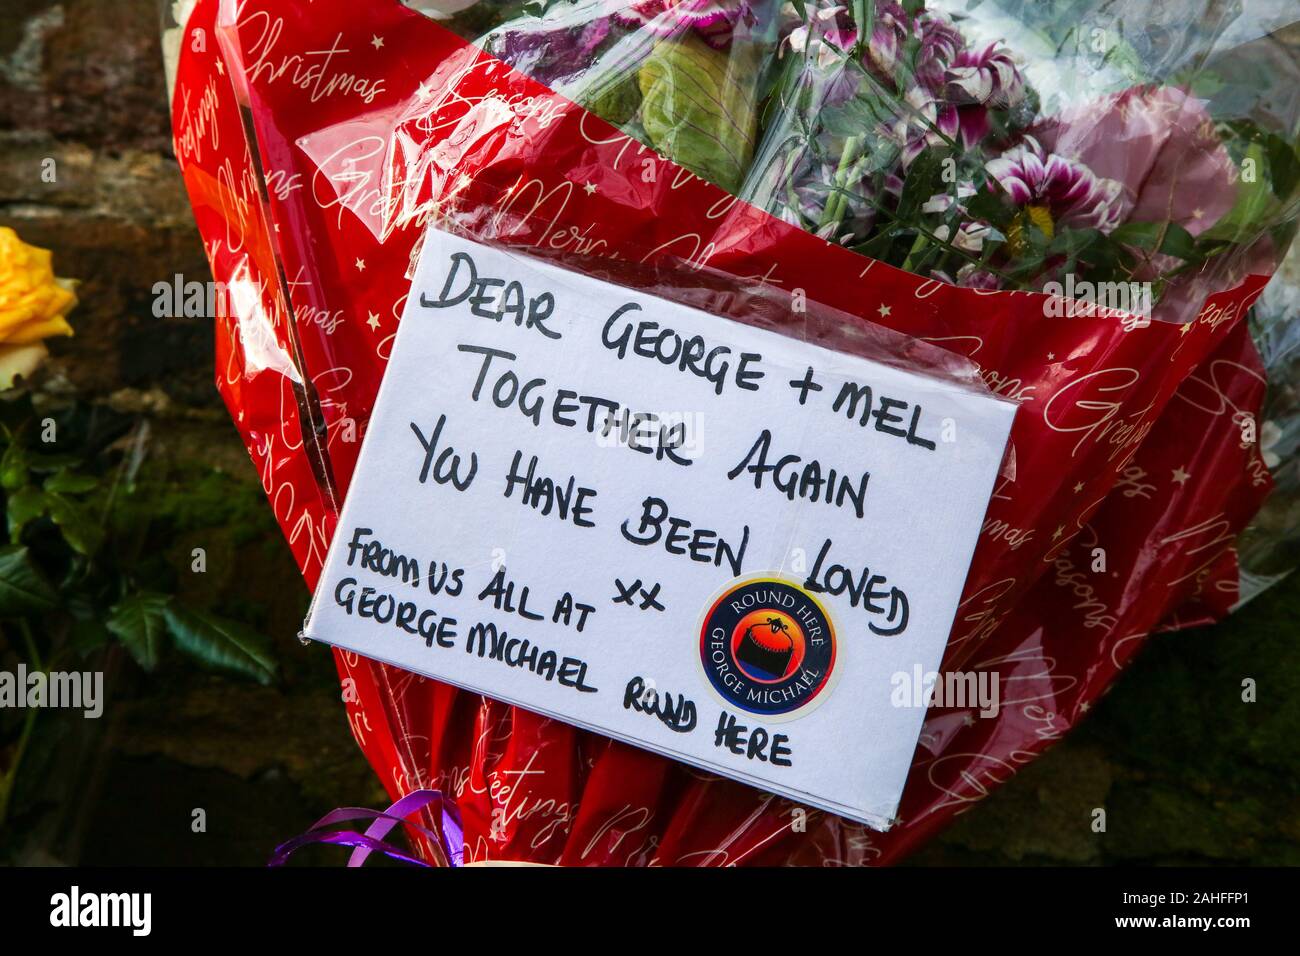 Christmas
Seasons
Greetings
Merry
Christmas
DEAR GEORGE + MEL
TOGETHER AGAIN
YOU HAVE BEEN LOVED
XX
FROM US ALL AT
GEORGE MICHAEL ROUND HERE
ROUND HERE
GEORGE MICHAEL
Seasons
Greetings
alamy
Image ID: 2AHFFP1
www.alamy.com